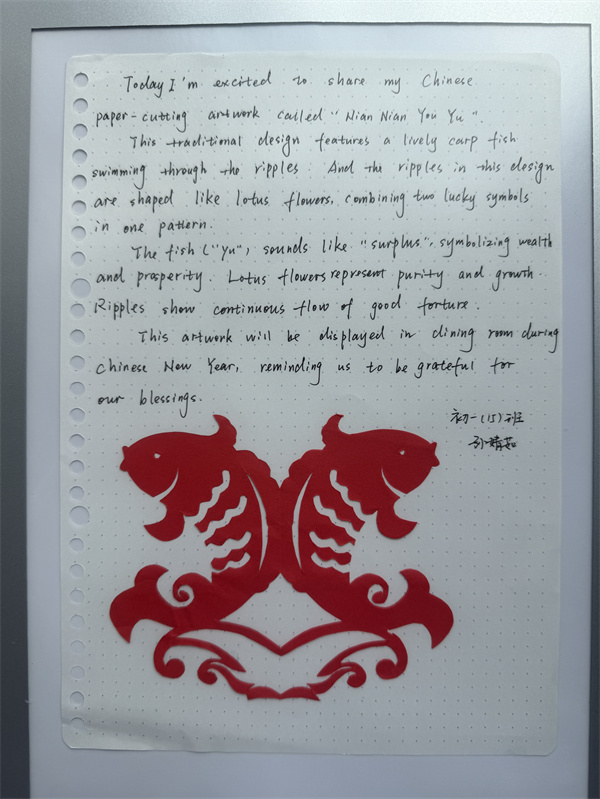 Today I'm excited to share my Chinese
paper-cutting artwork called "Nian Nian You Yu".
This traditional design features a lively carp fish
swimming through the ripples. And the ripples in this design
are shaped like lotus flowers, combining two lucky symbols
in one pattern.
The fish ("Yu") sounds like "surplus", symbolizing wealth
and prosperity. Lotus flowers represent purity and growth.
Ripples show continuous flow of good forture.
This artwork will be displayed in dining room during
Chinese New Year, reminding us to be grateful for
our blessings.
初一(15)班
孙婧茹